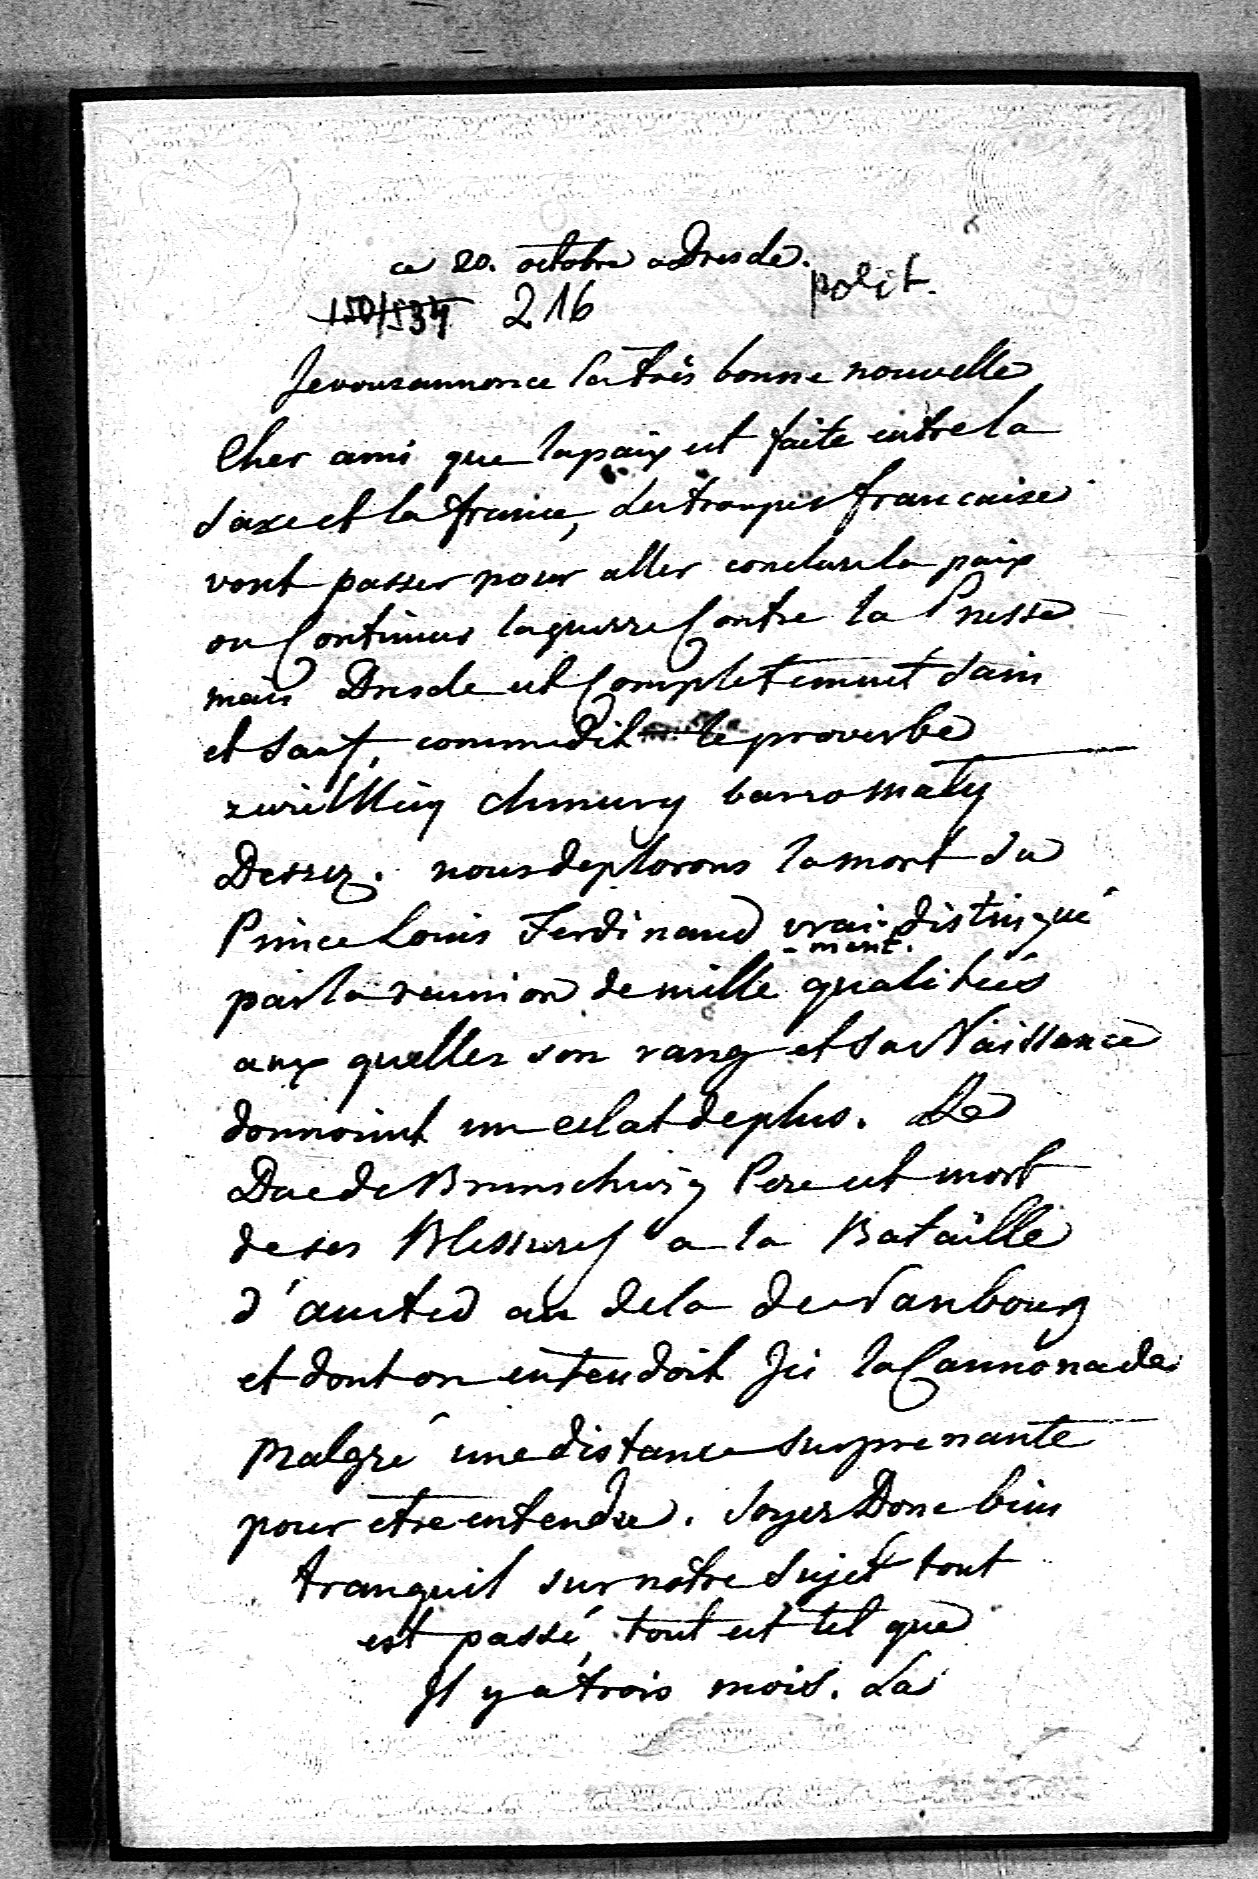 ce 20. octobre a Dresde.
polit.
150/534 216
Je vous annonce la très bonne nouvelle
Cher ami que la paix est faite entre la
Saxe et la france, des troupes francaise
vont passer pour aller conclure la paix
ou Continuer la guerre Contre la Prusse
mais Dresde est Completement sain
et sauf, comme dit le proverbe
z wielkiey chmury barzo maly
Deszcz. nous deplorons la mort du
Prince Louis Ferdinand vrai- distingué
-ment.
par la reunion de mille qualitées
aux quelles son rang et sa Naissance
donnoint un eclat de plus. Le
Duc de Brunschwig Pere est mort
de ses Blessures a la Bataille
d'austed au dela de Naubourg
et dont on entendoit Ici la Cannonade
malgré une distance surprenante
pour etre entendue. Soyez Donc bien
tranquil sur nôtre Sujet tout
est passé, tout est tel que
Il y a trois mois. La